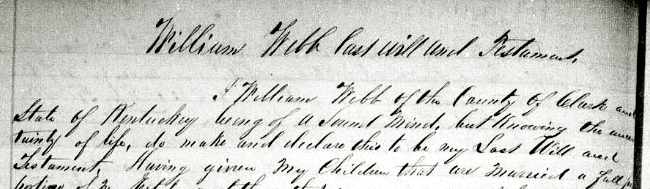 William Webb last will and Testament,
I William Webb of the County of Clark and
State of Kentucky being of a Sound Mind, but Knowing the uncer
tainty of life, do make and declare this to be my Last Will and
Testament, Having given my Children that are married a full